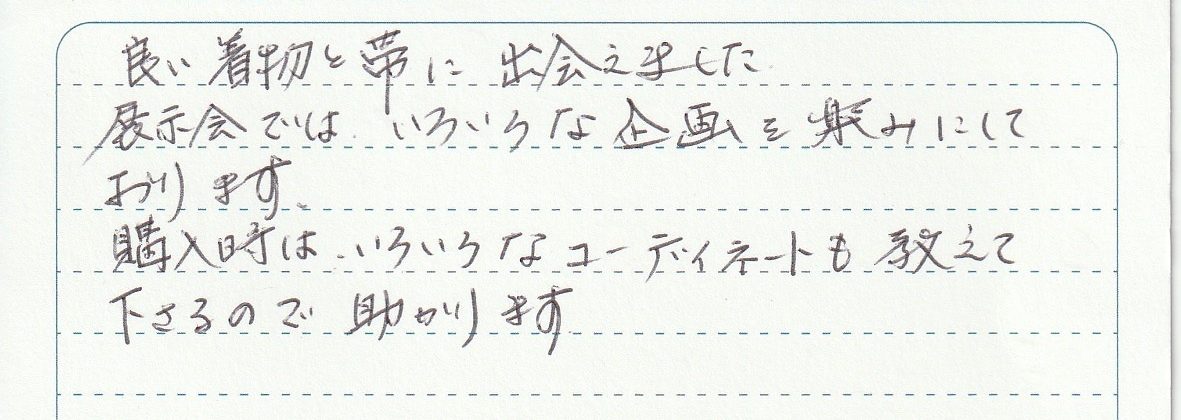 良い着物と帯に出会えました
展示会では、いろいろな企画を楽みにして
おります。
購入時は、いろいろなコーディネートも教えて
下さるので助かります